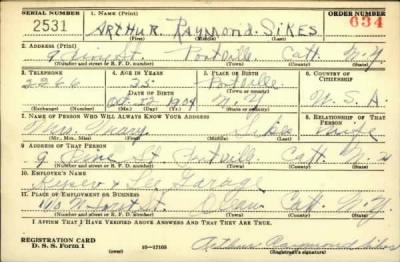 SERIAL NUMBER 1. NAME (Print) ORDER NUMBER
2531 ARTHUR Raymond SIKES 634
(First) (Middle) (Last)
2. ADDRESS (Print)
9 Pine St Portville Catt N.Y.
(Number and street or R. F. D. number) (Town) (County) (State)
3. TELEPHONE 4. AGE IN YEARS 5. PLACE OF BIRTH 6. COUNTRY OF CITIZENSHIP
2266 35 Portville
DATE OF BIRTH
Oct 1904 N.Y. U.S.A.
(Exchange) (Number) (Mo.) (Day) (Yr.) (State or country)
7. NAME OF PERSON WHO WILL ALWAYS KNOW YOUR ADDRESS 8. RELATIONSHIP OF THAT PERSON
Mrs. Mary Sikes Wife
(Mr., Mrs., Miss) (First) (Middle) (Last)
9. ADDRESS OF THAT PERSON
9 Pine St Portville Catt N.Y.
(Number and street or R. F. D. number) (Town) (County) (State)
10. EMPLOYER'S NAME
11. PLACE OF EMPLOYMENT OR BUSINESS
St. Olean Catt. N.Y.
(Number and street or R. F. D. number) (Town) (County) (State)
I AFFIRM THAT I HAVE VERIFIED ABOVE ANSWERS AND THAT THEY ARE TRUE.
REGISTRATION CARD
D. S. S. Form 1 16-17105 (over) Arthur Raymond Sikes